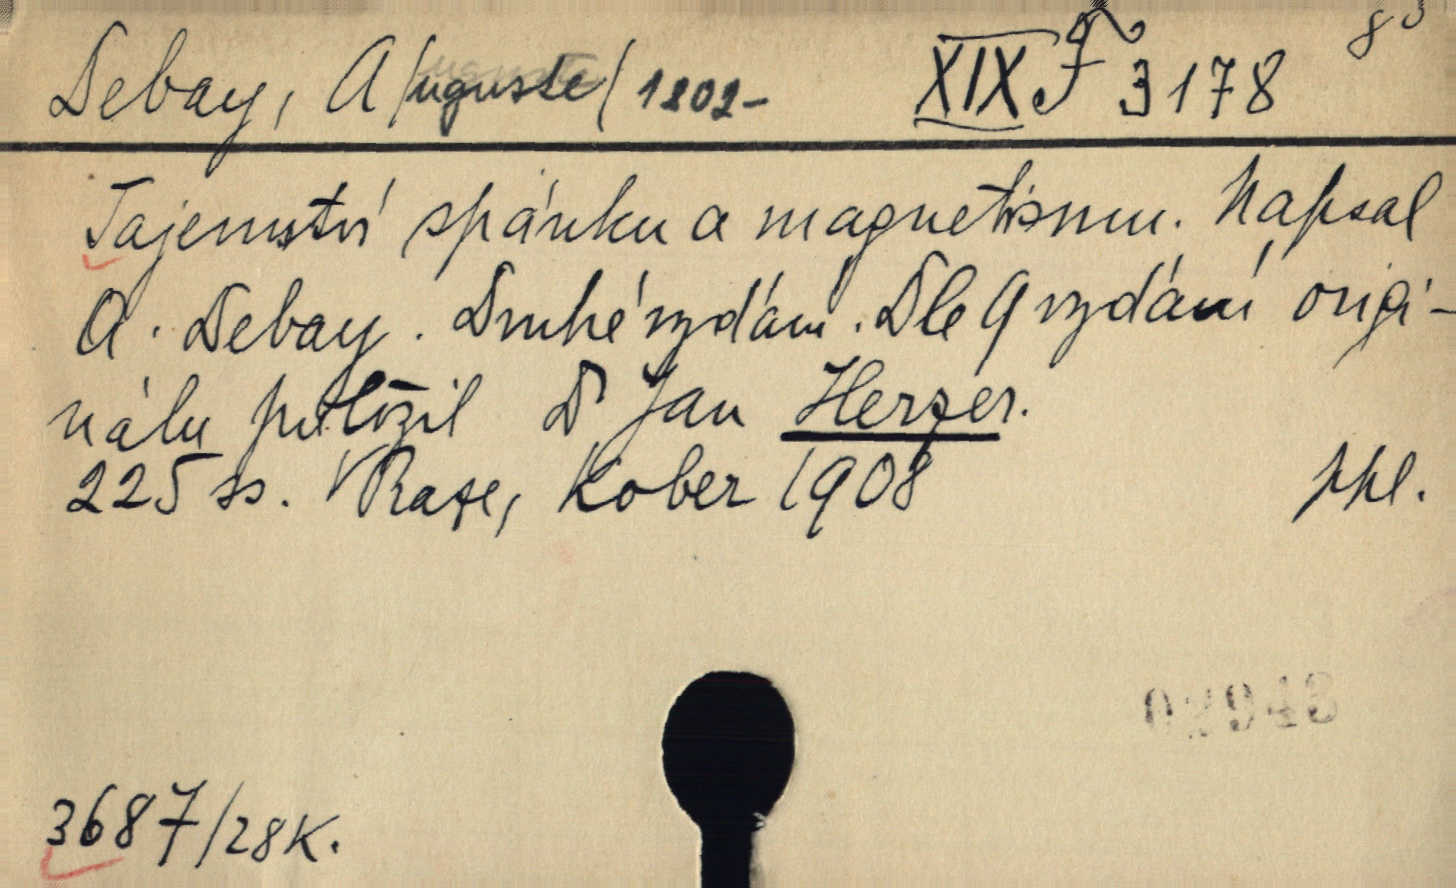 Debay, A/uguste/ 1802- XIX F 3178 8°
Tajemství spánku a magnetismu. Napsal
A. Debay. Druhé vydání. Dle 9 vydání origi-
nálu přeložil Dr Jan Herzer.
225 ss. V Praze, Kober 1908 ppl.
3687/28K.